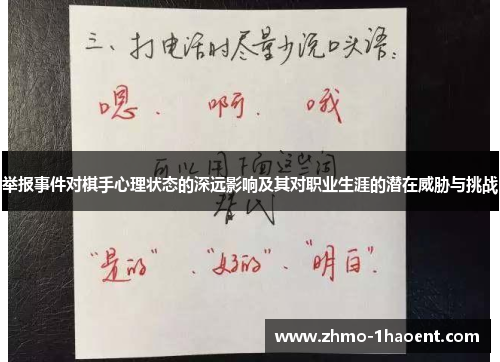 三、打电话时尽量少说口头语：
嗯． 啊． 哦
可以用下面这些词
举报事件对棋手心理状态的深远影响及其对职业生涯的潜在威胁与挑战
替代
“是的”、“好的”、“明白”．
www.zhmo-1haoent.com